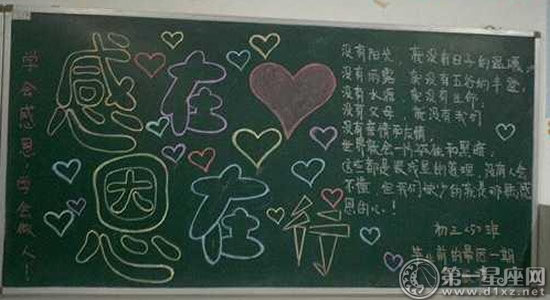 学会感恩，学会做人！
感在
恩在行
没有阳光，就没有日子的温暖
没有雨露，就没有五谷的丰登
没有水源，就没有生命
没有父母，就没有我们
没有亲情和友情
世界就会一片孤独和黑暗
这些都是最浅显的道理，没有人会
不懂，但我们缺少的就是那种感
恩的心！
初三(5)班
前的最后一期
第一星座网
www.d1xz.net